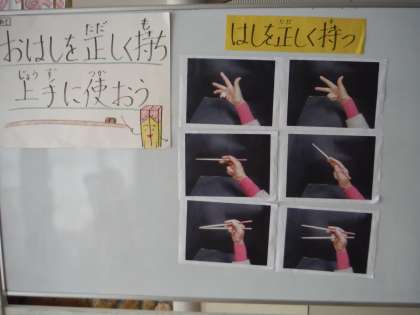 おはしを正しく持ち
上手に使おう
はしを正しく持つ